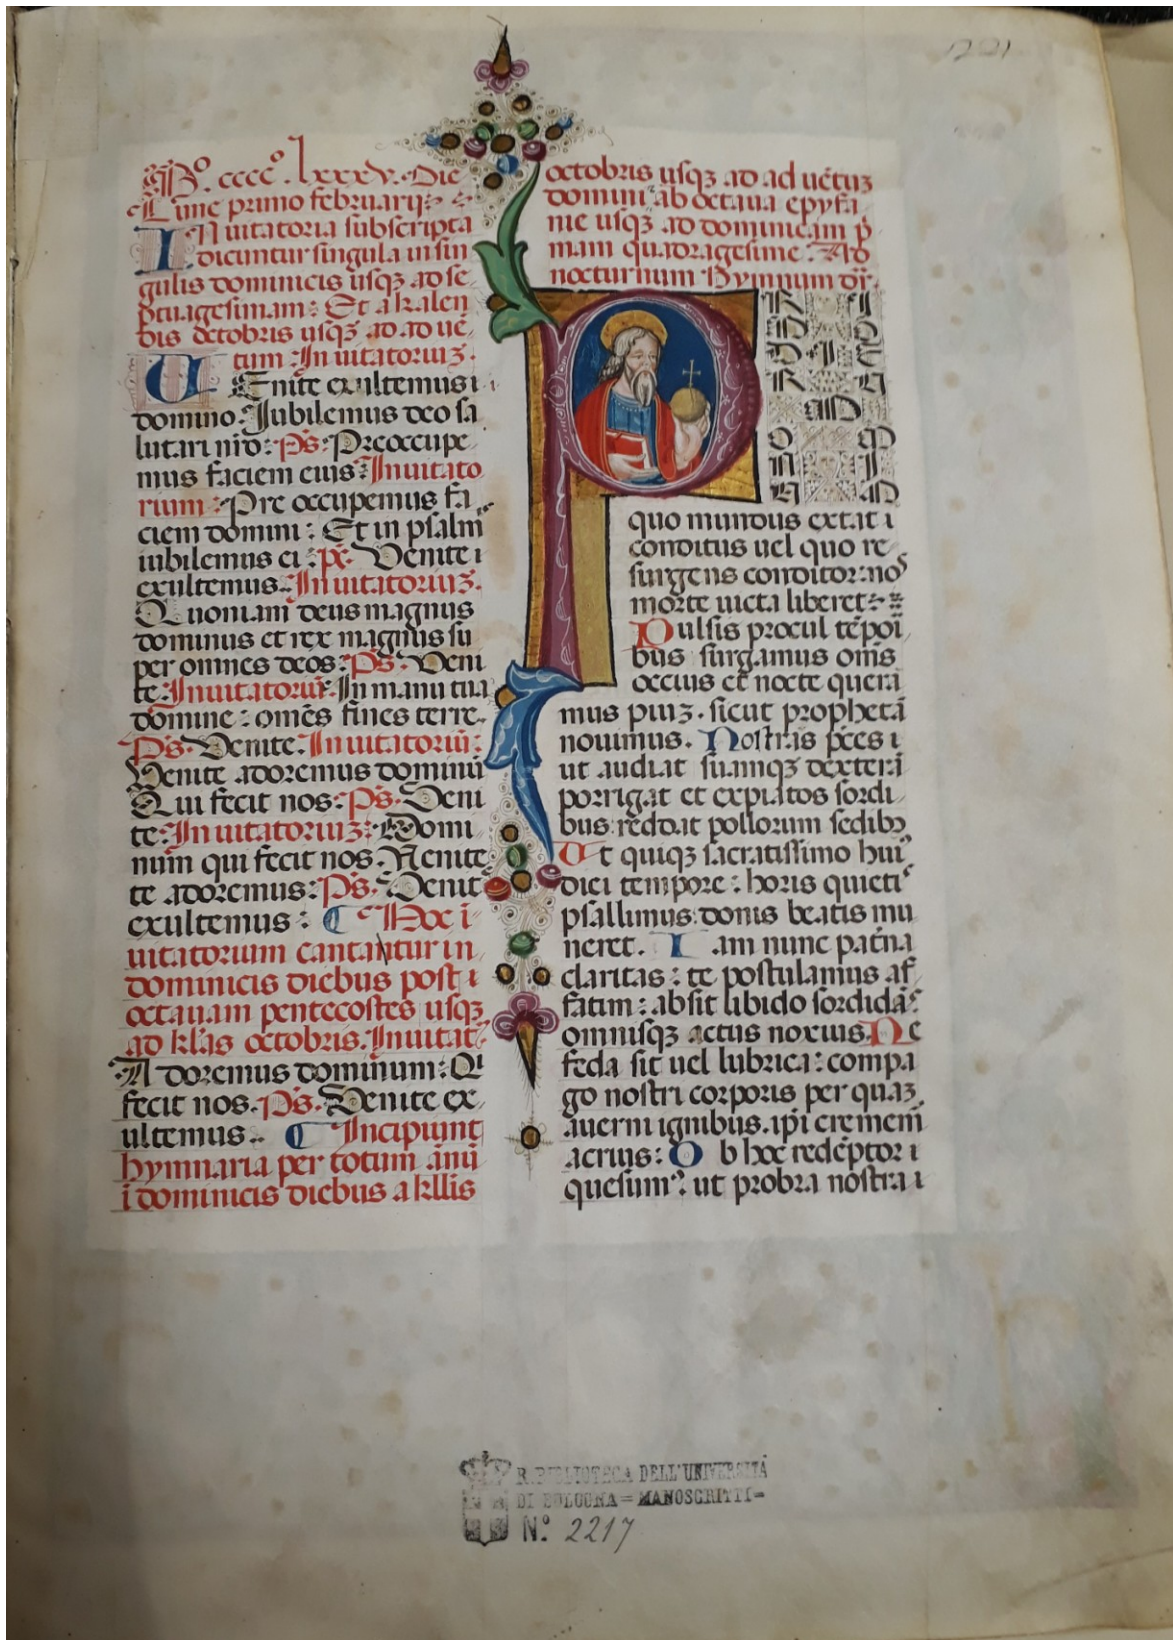 Mº. ccccº. lxxxv. Die
Lune primo februarij
IN uitatoria subscripta
dicuntur singula in sin
gulis dominicis usqꝫ ad se
ptuagesimam: Et a kalen
dis octobris usqꝫ ad ad uē
tum: In uitatoriuꝫ.
VEnite exultemus
domino: Iubilemus deo sa
lutari nr̄o: Ps: Preoccupe
mus faciem eius: Inuitato
rium: Pre occupemus fa
ciem domini: Et in psalmi
iubilemus ei: ps. Venite
exultemus.. In uitatoriuꝫ.
Quoniam deus magnus
dominus et rex magnus su
per omnes deos: Ps: Veni
te: Inuitatoriū: In manu tua
domine: omēs fines terre.
Ps. Venite. In uitatoriū:
Venite adoremus dominū
Qui fecit nos: Ps. Veni
te: In uitatoriuꝫ: Domi
num qui fecit nos. Venite
te adoremus: Ps. Venit
exultemus: Hoc i
uitatorium cantantur in
dominicis diebus post
octauam pentecostes usqꝫ
ad kl̄as octobris. Inuitat.
Adoremus dominum: Qi
fecit nos. Ps. Venite ex
ultemus.. Incipiunt
hymnaria per totum ānū
ī dominicis diebus a kll̄is
octobris usqꝫ ad ad uētuꝫ
domini ab octaua epyfa
nie usqꝫ ad dominicam p̄
mam quadragesime. Ad
nocturnum Hymnum dr̄.
P
RI
MO
DI
ERUM
OM
NI
UM
quo mundus extat
conditus uel quo re
surgens conditor: nos
morte uicta liberet:
Pulsis procul tēpori
bus surgamus om̄s
occius et nocte querā
mus piuꝫ. sicut prophetā
nouimus. Nostras p̄ces
ut audiat suamqꝫ dexterā
porrigat et expiatos sordi
bus: reddat pollorum sedibꝫ
Ut quiqꝫ sacratissimo hui
diei tempore: horis quieti
psallimus: donis beatis mu
neret. Iam nunc pat̄na
claritas: te postulamus af
fatim: absit libido sordidās
omnisqꝫ actus noxius. Ne
feda sit uel lubrica: compa
go nostri corporis per quaꝫ
auerni ignibus. ip̄i cremem
acrius: Ob hoc redēptor
quesum: ut probra nostra
R. BIBLIOTECA DELL'UNIVERSITÀ
DI BOLOGNA = MANOSCRITTI =
N.º 2217